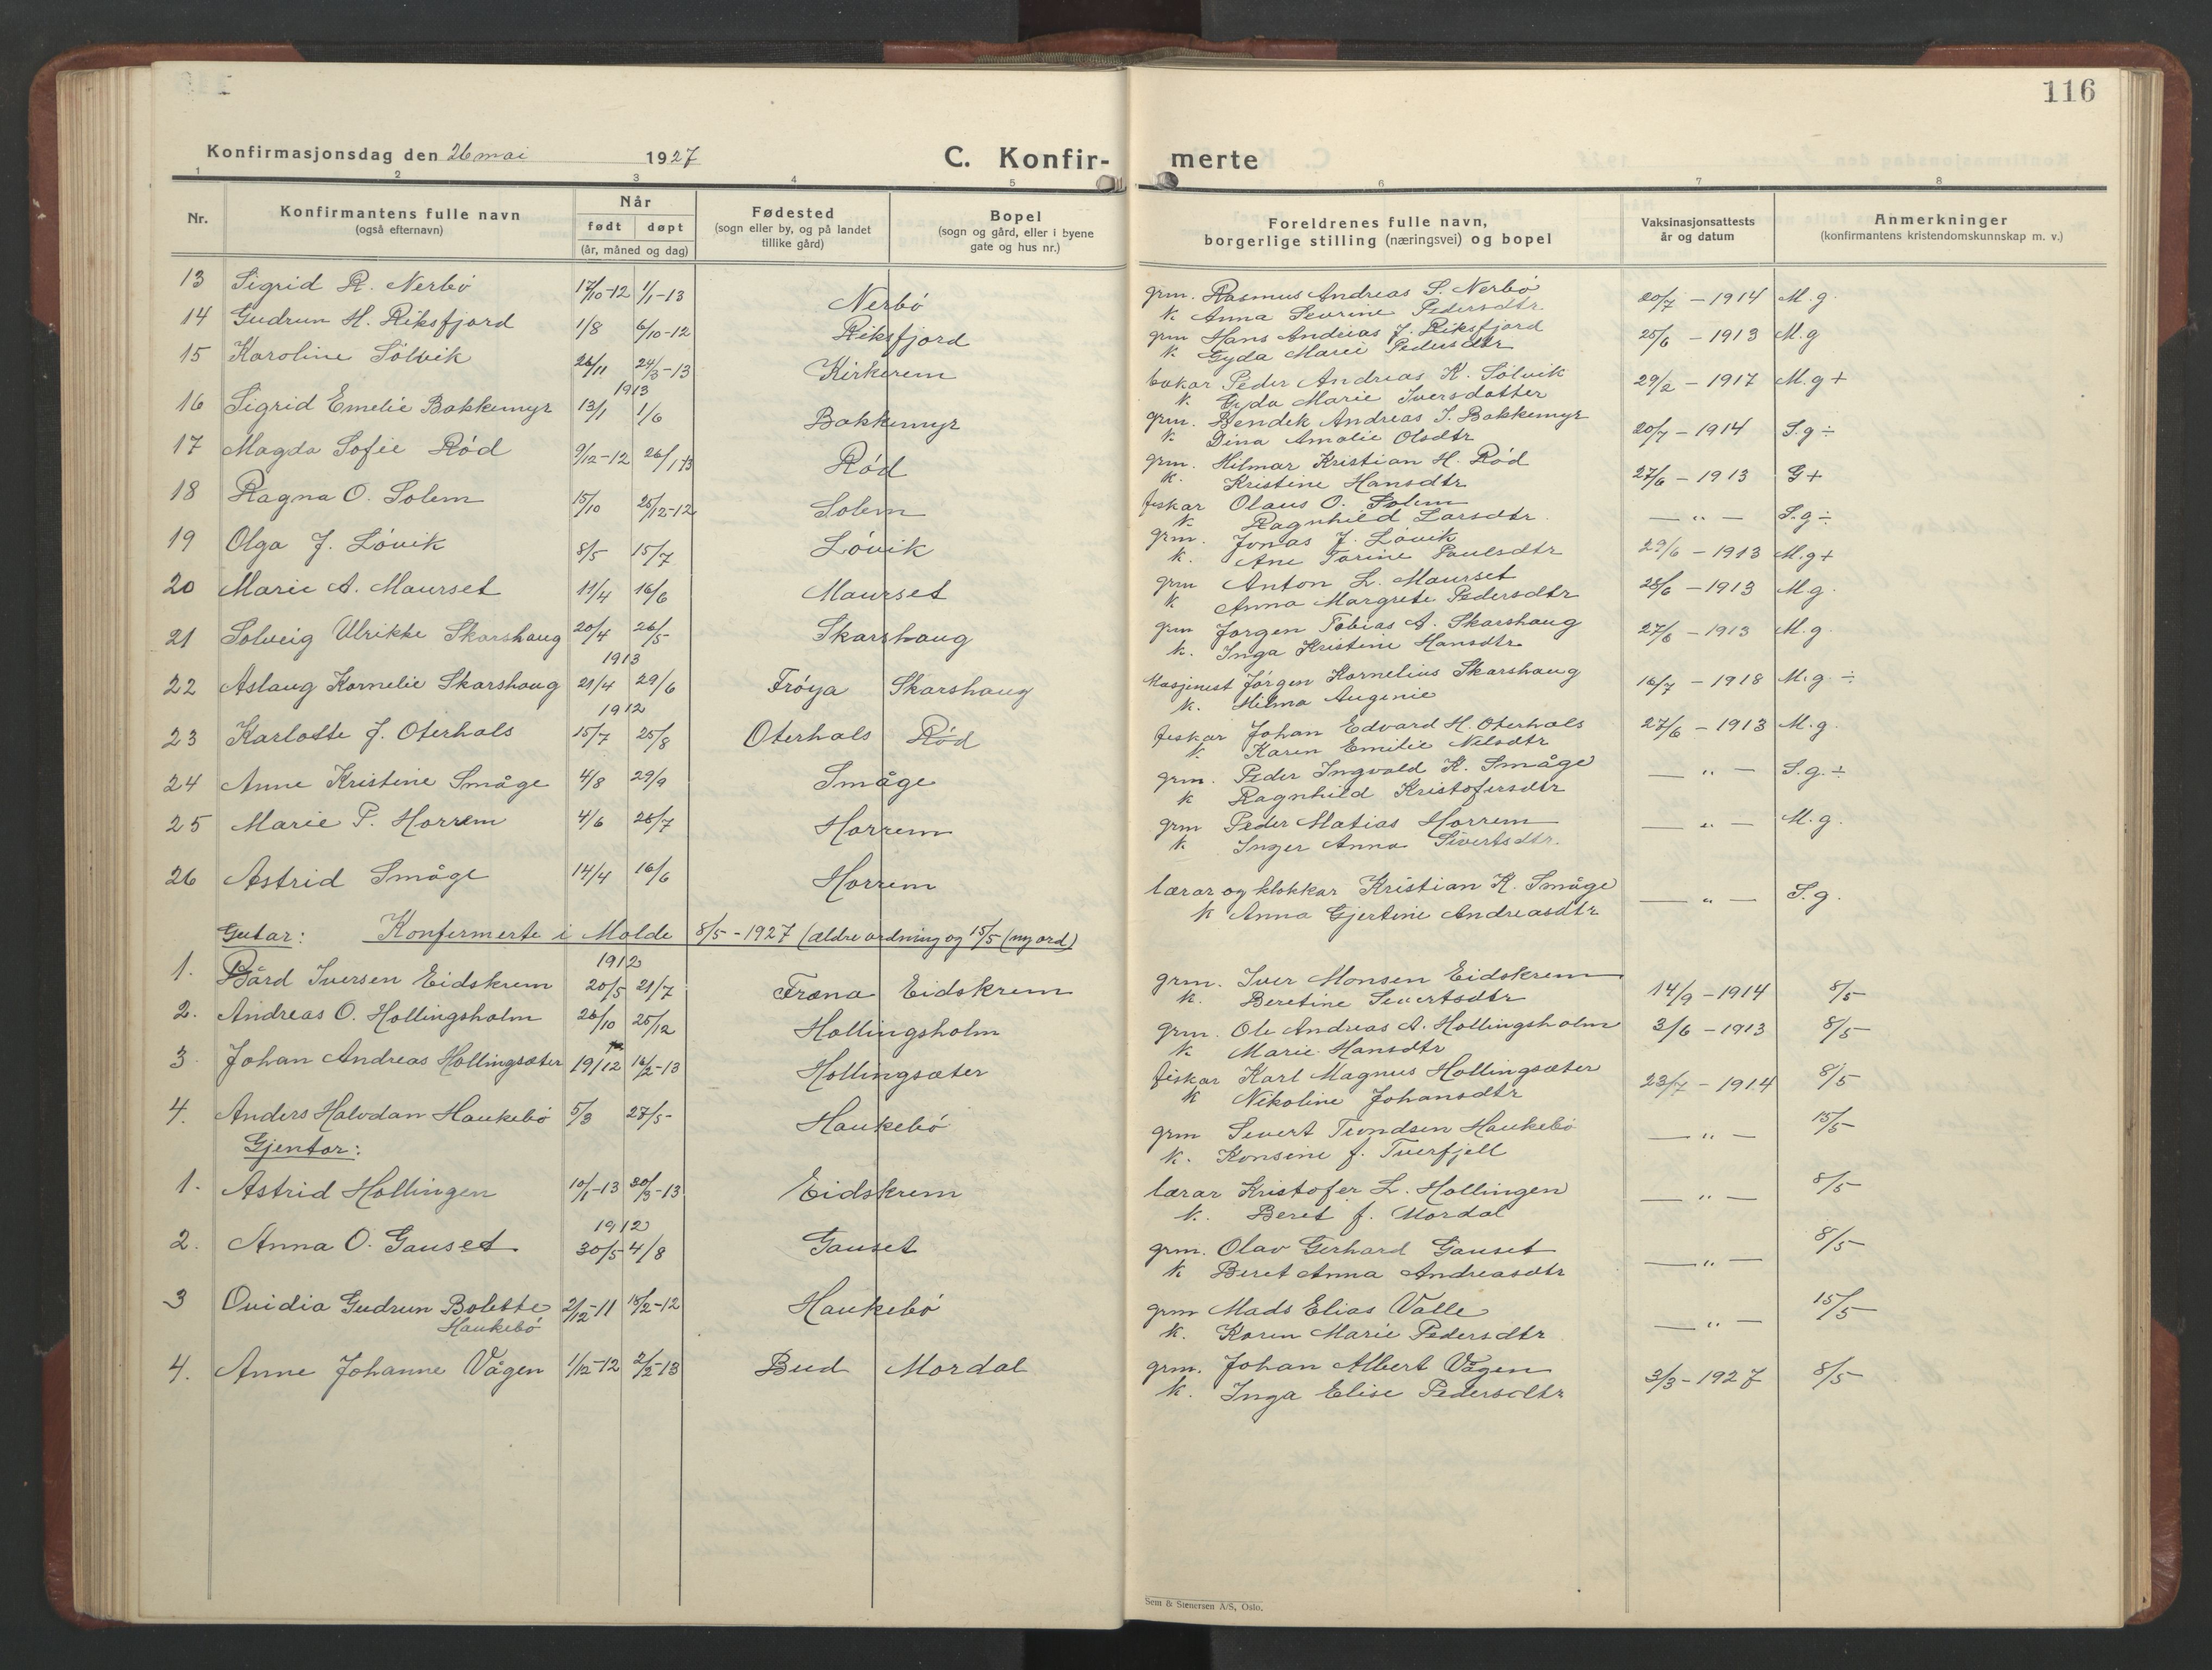 116
Konfirmasjonsdag den 26 mai 1927 C. Konfir- merte
1 2 3 4 5 6 7 8
Nr. Konfirmantens fulle navn (også efternavn) Når født døpt (år, måned og dag) Fødested (sogn eller by, og på landet tillike gård) Bopel (sogn og gård, eller i byene gate og hus nr.) Foreldrenes fulle navn, borgerlige stilling (næringsvei) og bopel Vaksinasjonsattests år og datum Anmerkninger (konfirmantens kristendomskunnskap m. v.)
13 Sigrid R. Nerbö 17/10-12 1/1-13 Nerbö grm. Rasmus Andreas S. Nerbö 20/7 - 1914 M.g.
k. Anna Sevrine Pedersdtr.
14 Gudrun H. Riksfjord 1/8 6/10-12 Riksfjord grm Hans Andreas J. Riksfjord 25/6 - 1913 M.g
k. Gyda Marie Pedersdtr
15 Karoline Sölvik 26/11 24/3-13 Kirkerem bakar Peder Andreas K. Sölvik 29/2 - 1917 M.g +
k. Gyda Marie Iversdatter
1913
16 Sigrid Emelie Bakkemyr 13/1 1/6 Bakkemyr grm. Bendek Andreas J. Bakkemyr 20/7 - 1914 S.g ÷
k. Dina Amalie Olsdtr
17 Magda Sofie Röd 9/12-12 26/1 13 Röd grm. Hilmar Kristian H. Röd 27/6 - 1913 G+
k. Kristine Hansdtr
18 Ragna O. Solem 15/10 25/12-12 Solem fiskar Olaus O. Solem — " — S.g ÷
k. Ragnhild Larsdtr.
19 Olga J. Lövik 8/5 15/7 Lövik grm. Jonas J. Lövik 29/6 - 1913 M.g +
k. Ane Tarine Paulsdtr
20 Marie A. Maurset 11/4 16/6 Maurset grm Anton L. Maurset 28/6 - 1913 M.g.
k. Anna Margrete Pedersdtr
21 Solveig Ulrikke Skarshaug 20/4 26/5 Skarshaug grm Jørgen Tobias A. Skarshaug 27/6 - 1913 M.g.
k. Inga Kristine Hansdtr
1913
22 Aslaug Kornelie Skarshaug 21/4 29/6 Fröya Skarshaug Masjenist Jörgen Kornelius Skarshaug 16/7 - 1918 M.g. ÷
k. Hilma Augenie
1912
23 Karlotte J. Oterhals 15/7 25/8 Oterhals Röd fiskar Johan Edvard H. Oterhals 27/6 - 1913 M.g.
k. Karen Emilie Nilsdtr
24 Anne Kristine Småge 4/8 29/9 Småge grm. Peder Ingvald K. Småge — " — S.g. ÷
k Ragnhild Kristofersdtr
25 Marie P. Horrem 4/6 28/7 Horrem grm Peder Matias Horrem — " — M.g.
k. Inger Anna Sivertsdtr.
26 Astrid Småge 14/4 16/6 Horrem lærar og klokkar Kristian K. Småge — " — S.g.
k Anna Gjertine Andreasdtr
Gutar: Konfermerte i Molde 8/5 - 1927 (ældre ordning og 15/5 (ny ord)
1912
1. Bård Iversen Eidskrem 20/5 21/7 Fræna Eidskrem grm. Iver Monsen Eidskrem 14/9 - 1914 8/5
k. Beretine Severtsdtr
2. Andreas O. Hollingsholm 26/10 25/12 Hollingsholm grm. Ole Andreas A. Hollingsholm 3/6 - 1913 8/5
k. Marie Hansdtr
3 Johan Andreas Hollingsæter 19/12 16/2-13 Hollingsæter fiskar Karl Magnus Hollingsæter 23/7 - 1914 8/5
k Nikoline Johansdtr
4. Anders Halvdan Haukebö 5/3 27/5- Haukebö grm Severt Tvondsen Haukebö — " — 15/5
k. Konsine f. Tverfjell
Gjentor:
1. Astrid Hollingen 10/1-13 30/3-13 Eidskrem lærar Kristofer L. Hollingen — " — 8/5
k. Beret f. Mordal
1912
2. Anna O. Gauset 30/5 4/8 Gauset grm. Olav Gerhard Gauset — " — 8/5
k Beret Anna Andreasdtr
3 Ovidia Gudrun Bolette Haukebö 2/12-11 18/2-12 Haukebö grm Mads Elias Valle — " — 15/5
k. Karen Marie Pedersdtr
4. Anne Johanne Vågen 1/12-12 2/2-13 Bud Mordal grm. Johan Albert Vågen 3/3 - 1927 8/5
k. Inga Elise Pedersdtr
Sem & Stenersen A/S, Oslo.